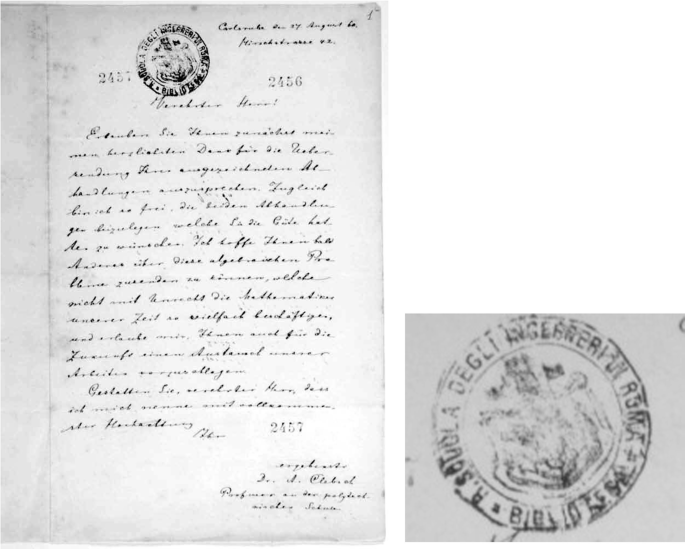 1
Carlsruhe den 27 August 60.
Hirschstrasse 42.
R. SCUOLA DEGLI INGEGNERI DI ROMA
2457
2456
Verehrter Herr!
Erlauben Sie Ihnen zunächst mei-
nen herzlichsten Dank für die Ueber-
sendung Ihrer ausgezeichneten Ab-
handlungen auszusprechen. Zugleich
bin ich so frei, die beiden Abhandlun-
gen beizulegen welche Sie die Güte hat-
ten zu wünschen. Ich hoffe Ihnen bald
Anderes über diese algebraischen Pro-
bleme zusenden zu können, welche
nicht mit Unrecht die Mathematiker
unserer Zeit so vielfach beschäftigen,
und erlaube mir, Ihnen auch für die
Zukunft einen Austausch unserer
Arbeiten vorzuschlagen.
Gestatten Sie, verehrter Herr, dass
ich mich nenne mit vollkommen-
ster Hochachtung
Ihr
2457
ergebenster
Dr. A. Clebsch
Professor an der polytech-
nischen Schule
R. SCUOLA DEGLI INGEGNERI DI ROMA